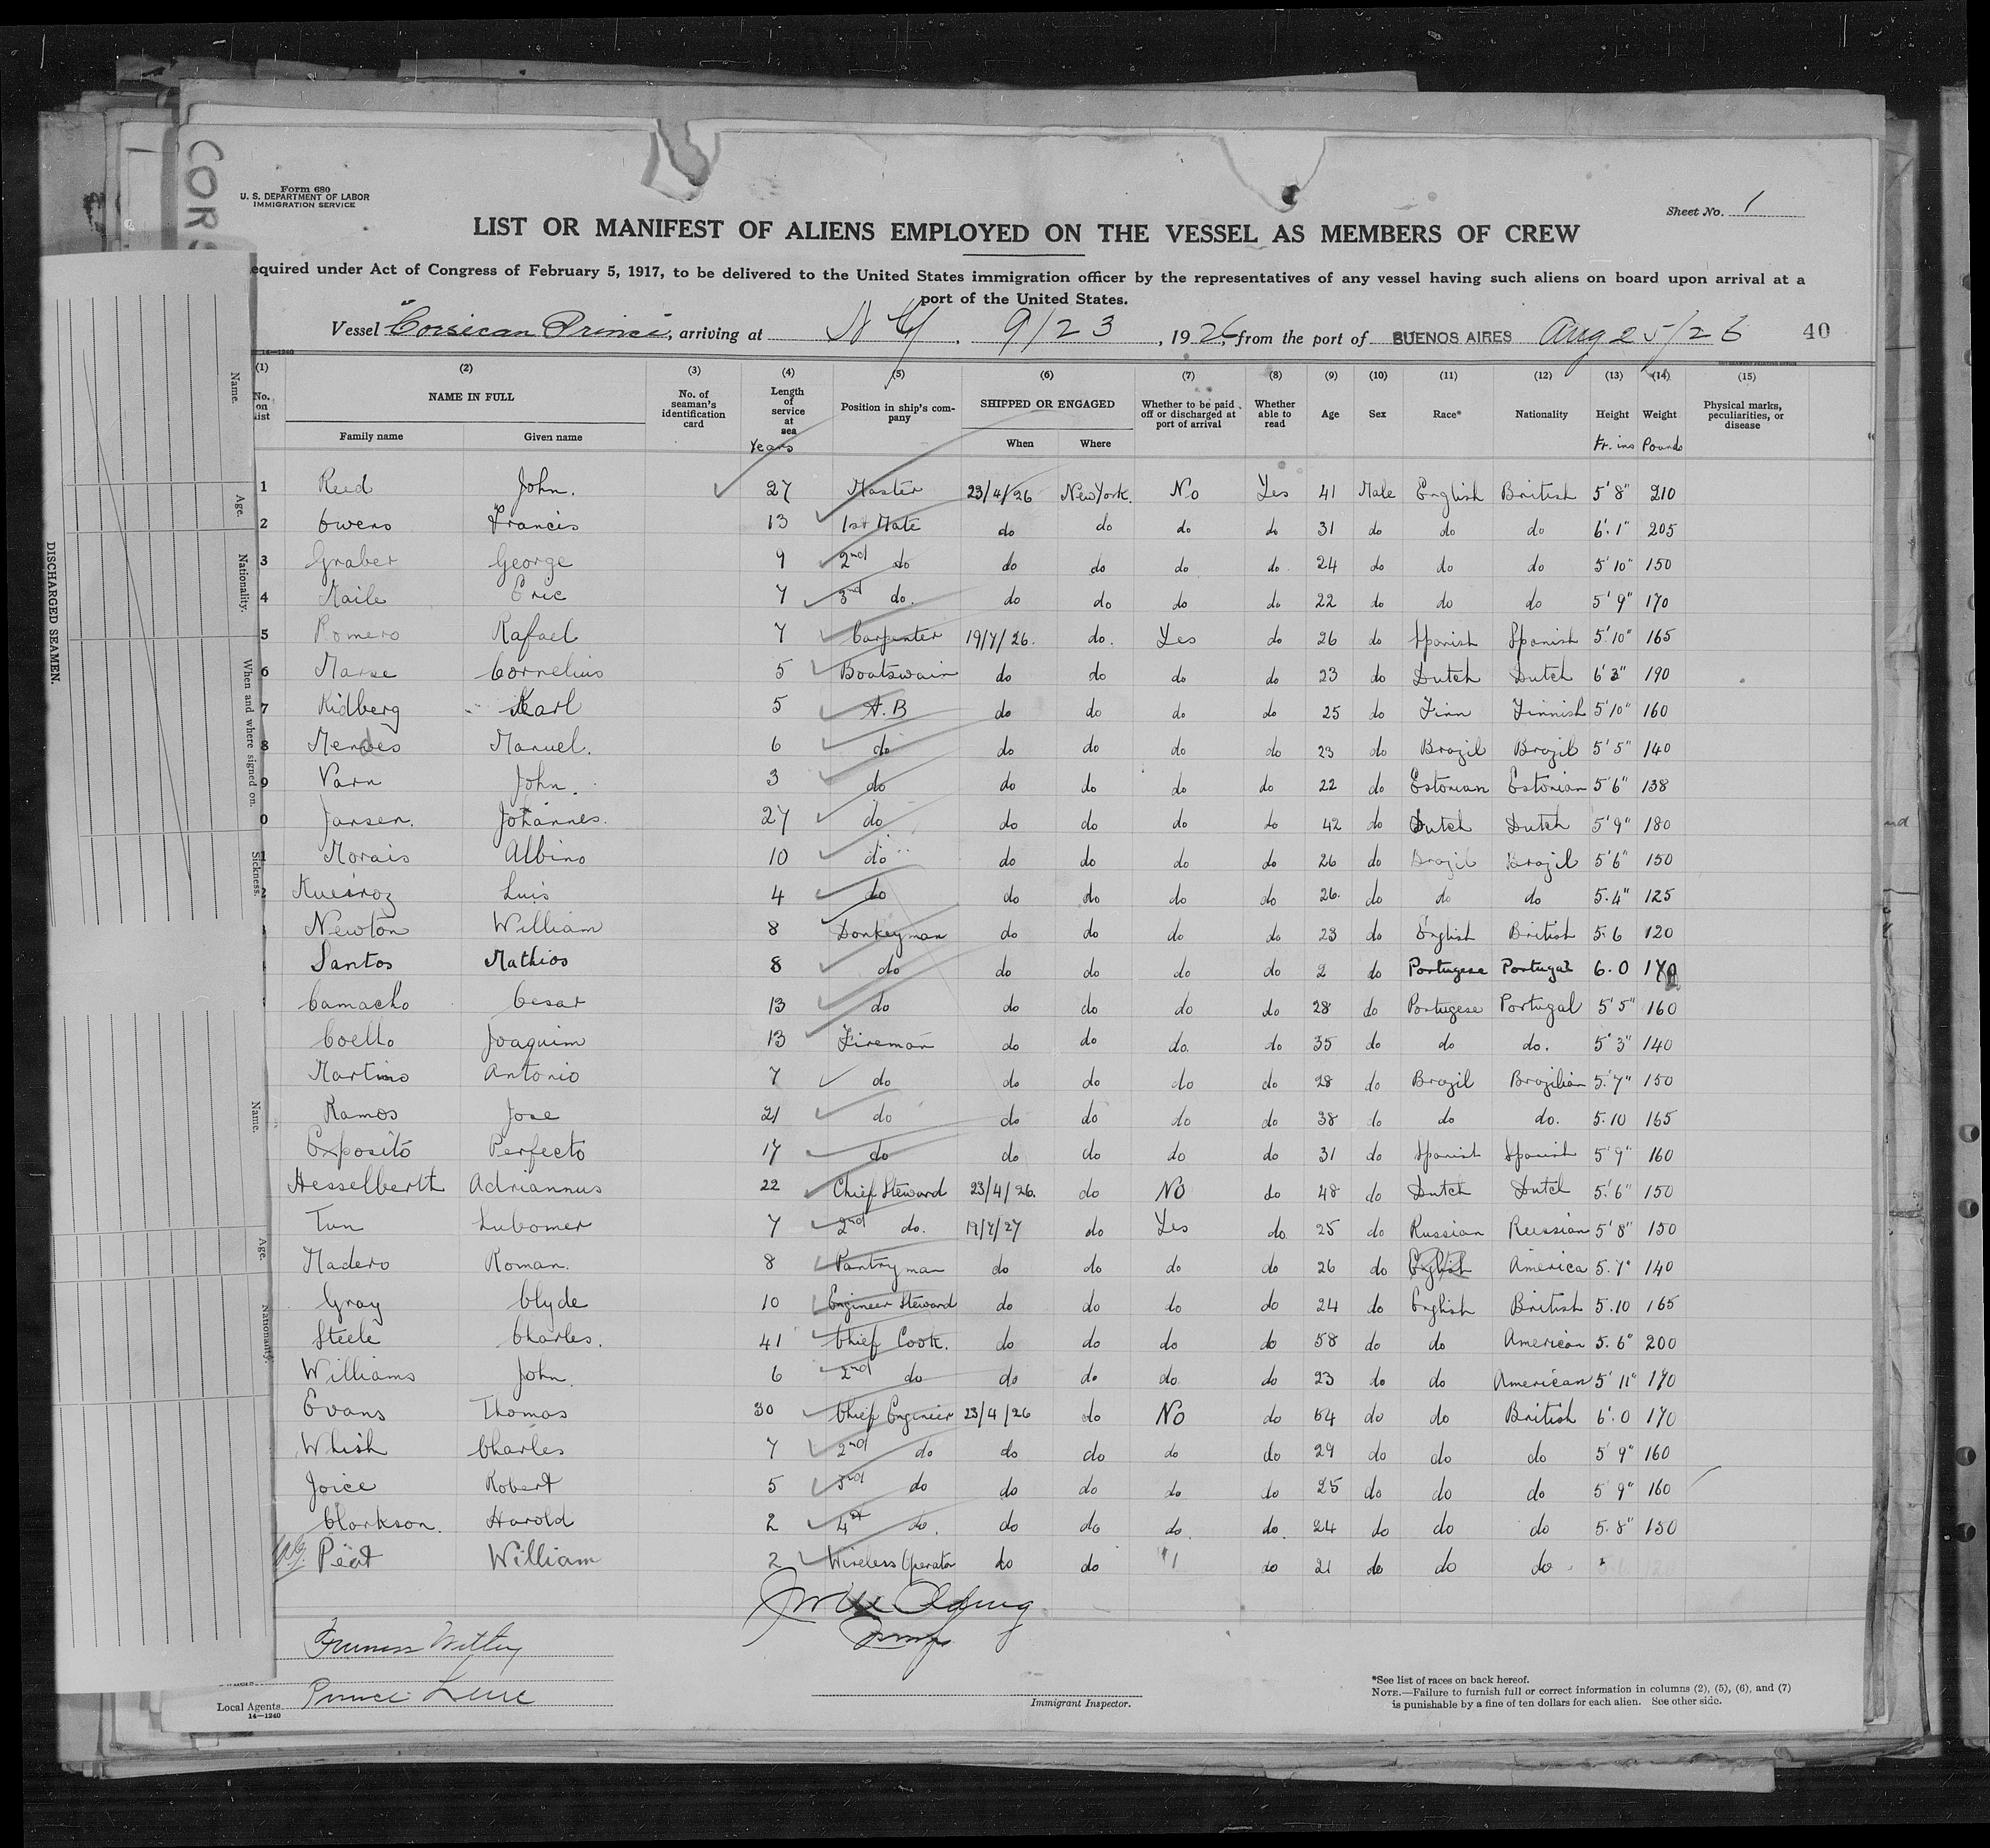 CORS
Form 680
U. S. DEPARTMENT OF LABOR
IMMIGRATION SERVICE
Sheet No. 1
LIST OR MANIFEST OF ALIENS EMPLOYED ON THE VESSEL AS MEMBERS OF CREW
equired under Act of Congress of February 5, 1917, to be delivered to the United States immigration officer by the representatives of any vessel having such aliens on board upon arrival at a
port of the United States.
Vessel "Corsican Prince, arriving at N Y. 9/23, 1926, from the port of BUENOS AIRES Aug 25/26 40
14—1240
(1) (2) (3) (4) (5) (6) (7) (8) (9) (10) (11) (12) (13) (14) (15)
No. on list NAME IN FULL Family name Given name No. of seaman's identification card Length of service at sea Years Position in ship's company SHIPPED OR ENGAGED When Where Whether to be paid off or discharged at port of arrival Whether able to read Age Sex Race* Nationality Height Ft. ins Weight Pounds Physical marks, peculiarities, or disease
1 Reed John. 27 Master 23/4/26 New York. No Yes 41 Male English British 5'8" 210
2 Owens Francis 13 1st Mate do do do do 31 do do do 6'.1" 205
3 Graber George 9 2nd do do do do do 24 do do do 5'10" 150
4 Kaile Eric 7 3rd do. do do do do 22 do do do 5'9" 170
5 Romero Rafael 7 Carpenter 19/7/26. do. Yes do 26 do Spanish Spanish 5'.10" 165
6 Marse Cornelius 5 Boatswain do do do do 23 do Dutch Dutch 6'3" 190
7 Kidberg Karl 5 A.B do do do do 25 do Finn Finnish 5'10" 160
8 Mendes Manuel. 6 do do do do do 23 do Brazil Brazil 5'5" 140
9 Varn John. 3 do do do do do 22 do Estonian Estonian 5'6" 138
0 Jansen. Johannes. 27 do do do do do 42 do Dutch Dutch 5'9" 180
1 Morais Albino 10 do do do do do 26 do Brazil Brazil 5'6" 150
2 Kuesroz Luis 4 do do do do do 26. do do do 5.4" 125
Newton William 8 Donkeyman do do do do 23 do English British 5.6 120
Santos Mathios 8 do do do do do 2 do Portugese Portugal 6.0 170
Camacho Cesar 13 do do do do do 28 do Portugese Portugal 5'5" 160
Coello Joaquim 13 Fireman do do do. do 35 do do do. 5'3" 140
Martino Antonio 7 do do do do do 28 do Brazil Brazilian 5'.7" 150
Ramos Jose 21 do do do do do 38 do do do. 5.10 165
Exposito Perfecto 17 do do do do do 31 do Spanish Spanish 5'9" 160
Hesselberth Adriannus 22 Chief Steward 23/4/26. do No do 48 do Dutch Dutch 5'.6" 150
Tun Lubomer 7 2nd do. 19/7/27 do Yes do 25 do Russian Russian 5'8" 150
Madero Roman. 8 Pantryman do do do do 26 do English America 5.7" 140
Gray Clyde 10 Engineer Steward do do do do 24 do English British 5.10 165
Steele Charles. 41 Chief Cook. do do do do 58 do do American 5.6" 200
Williams John. 6 2nd do do do do. do 23 do do American 5'11" 170
Evans Thomas 30 Chief Engineer 23/4/26 do No do 54 do do British 6'.0 170
Whish Charles 7 2nd do do do do do 29 do do do 5 9" 160
Joice Robert 5 3rd do do do do do 25 do do do 5 9" 160
Clarkson. Harold 2 4th do. do do do. do. 24 do do do 5.8" 150
Peat William 2 Wireless Operator do do " do 21 do do do
Furness Withy
Local Agents Prince Line
14—1240
Immigrant Inspector.
*See list of races on back hereof.
NOTE.—Failure to furnish full or correct information in columns (2), (5), (6), and (7)
is punishable by a fine of ten dollars for each alien. See other side.
DISCHARGED SEAMEN.
Name.
Age.
Nationality.
When and where signed on.
Sickness.
Name.
Age.
Nationality.